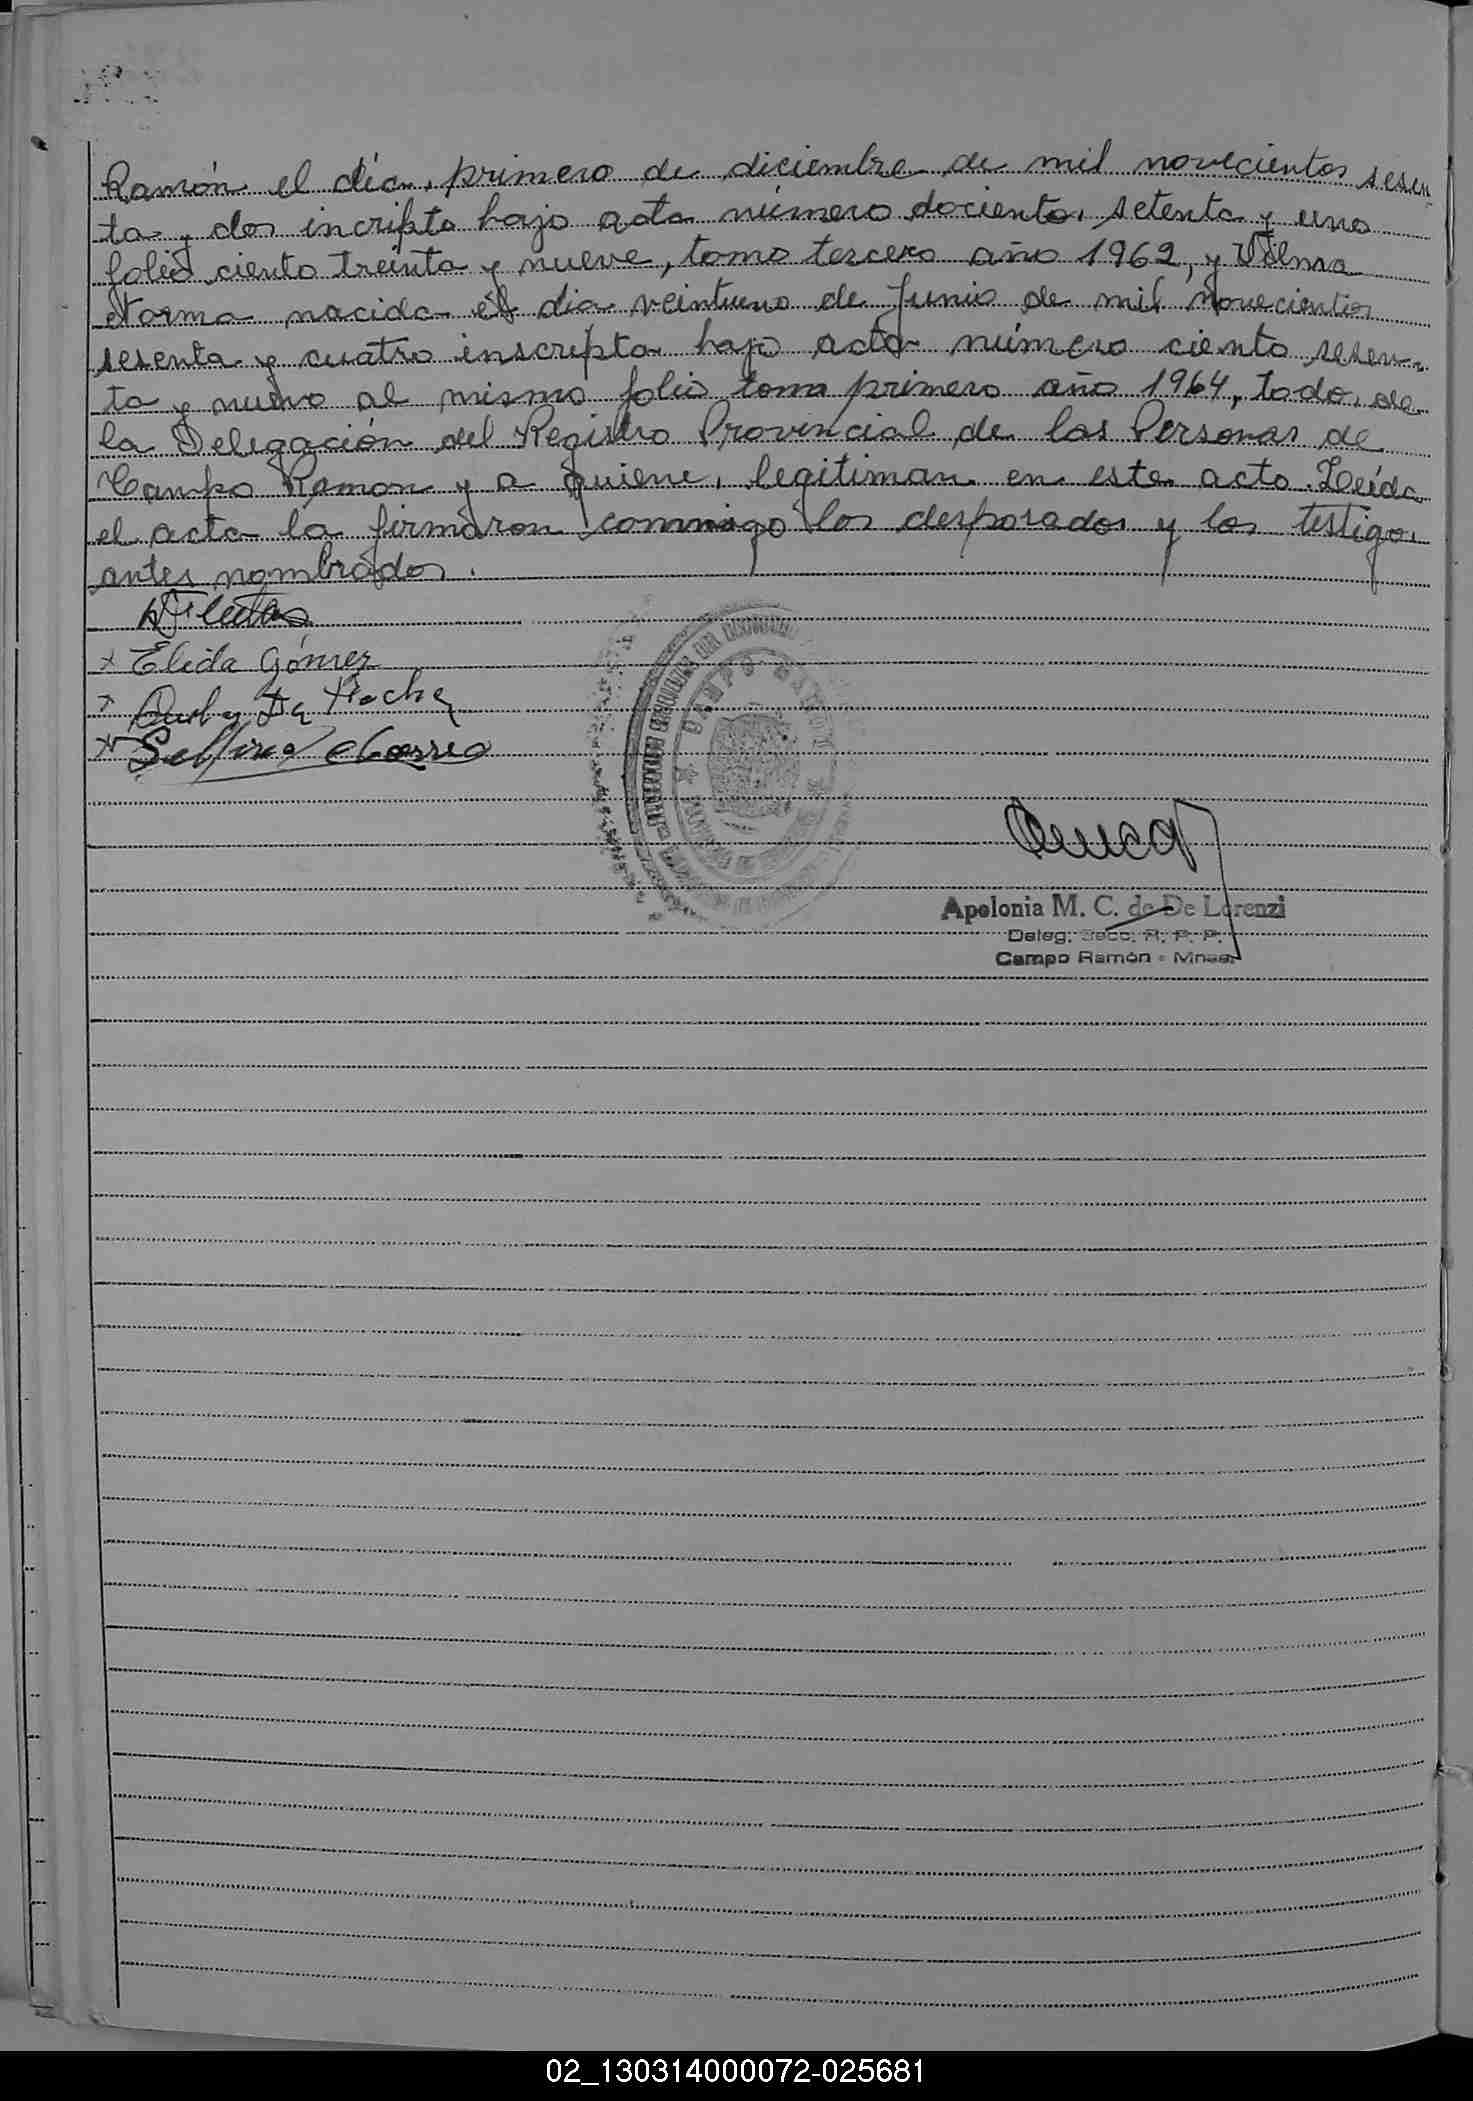 Ramón el día, primero de diciembre de mil novecientos sesen
ta y dos incripto bajo acta número dociento, setenta y uno
folio ciento treinta y nueve, tomo tercero año 1962, y Vilma
Norma nacida el dia veintiuno de Junio de mil novecientos
sesenta y cuatro inscripta bajo acta número ciento sesen-
ta y nueve al mismo folio tomo primero año 1964, todo, de
la Delegación del Registro Provincial de las Personas de
Campo Ramon y a quiene, legitiman en este acto. Leída
el acta la firmaron conmigo los desposados y los testigo,
antes nombrados.
x Elida Gómez
x Da Rocha
x
CAMPO RAMON
Apolonia M. C. de De Lorenzi
Deleg. Secc. R. P. P.
Campo Ramón - Mnes.
02_130314000072-025681